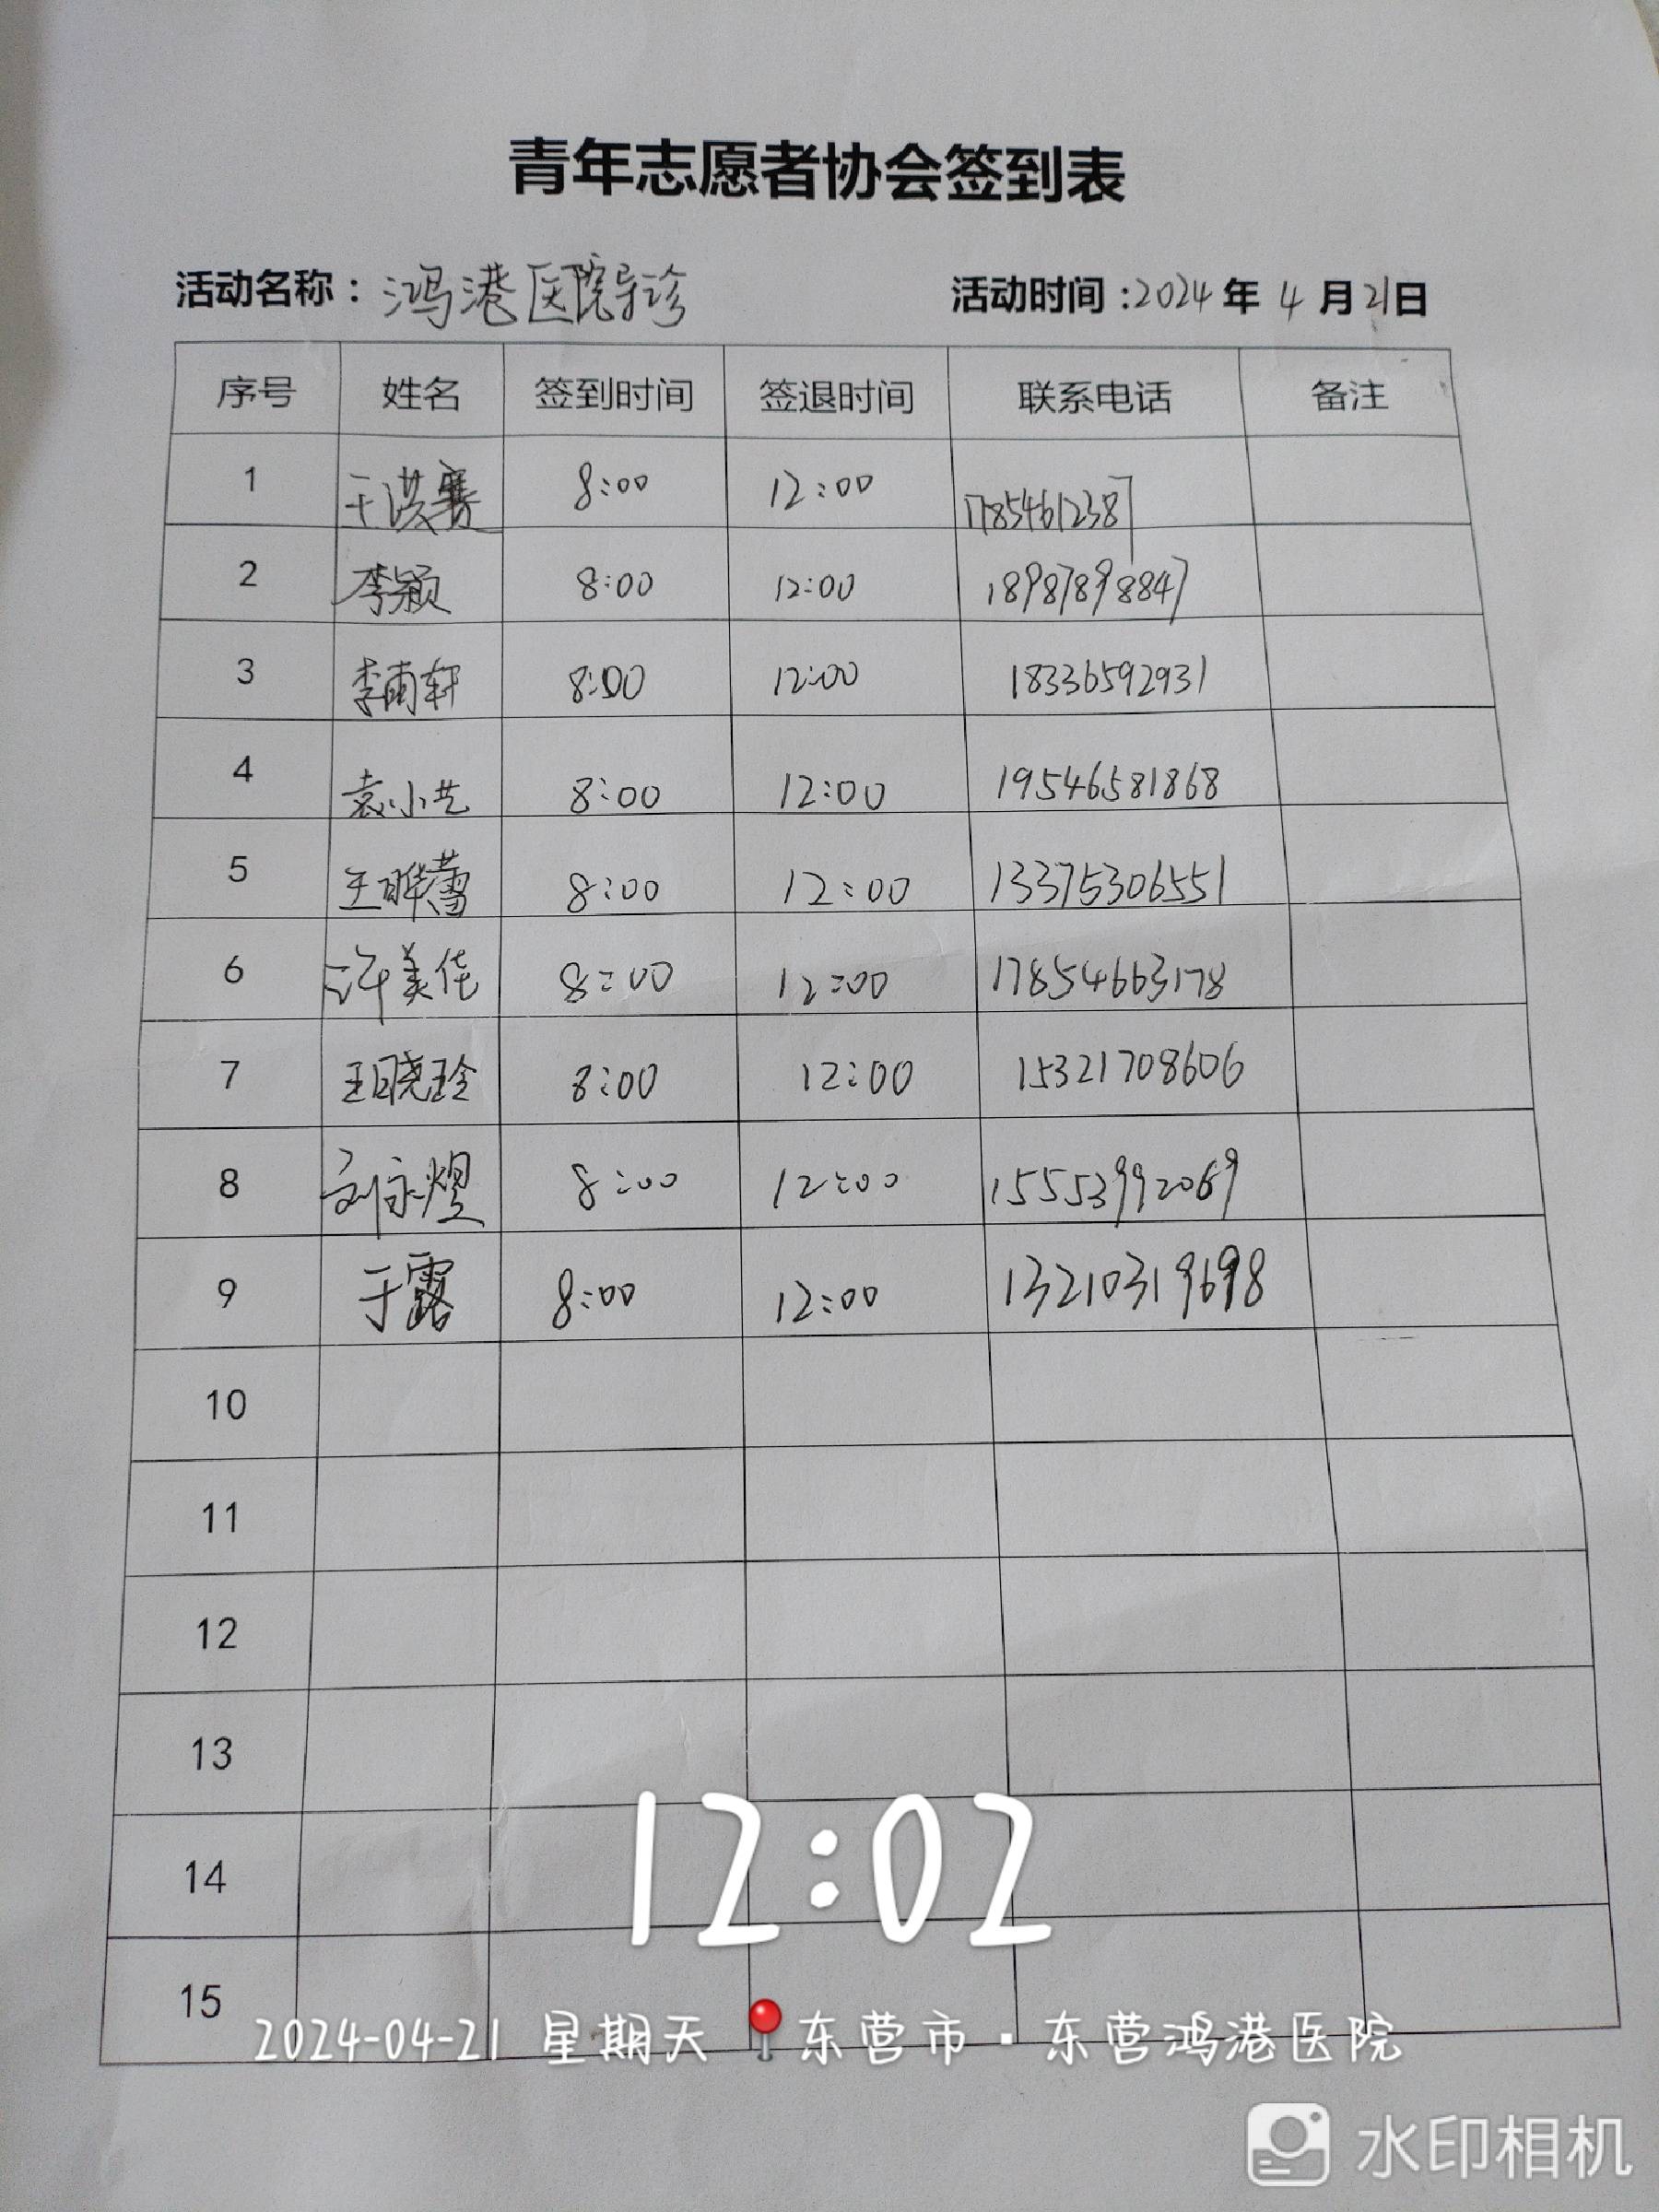 青年志愿者协会签到表
活动名称：鸿港医院导诊 活动时间：2024年4月21日
序号 姓名 签到时间 签退时间 联系电话 备注
1 于洪赛 8:00 12:00 17854612387
2 李颖 8:00 12:00 18987898847
3 李雨轩 8:00 12:00 18336592931
4 袁小艺 8:00 12:00 19546581868
5 王晔蕾 8:00 12:00 13375306551
6 许美佳 8:00 12:00 17854663178
7 王晓玲 8:00 12:00 15321708606
8 刘永煜 8:00 12:00 15553992069
9 于露 8:00 12:00 13210319698
10
11
12
13
14
15
12:02
2024-04-21 星期天 东营市·东营鸿港医院
水印相机